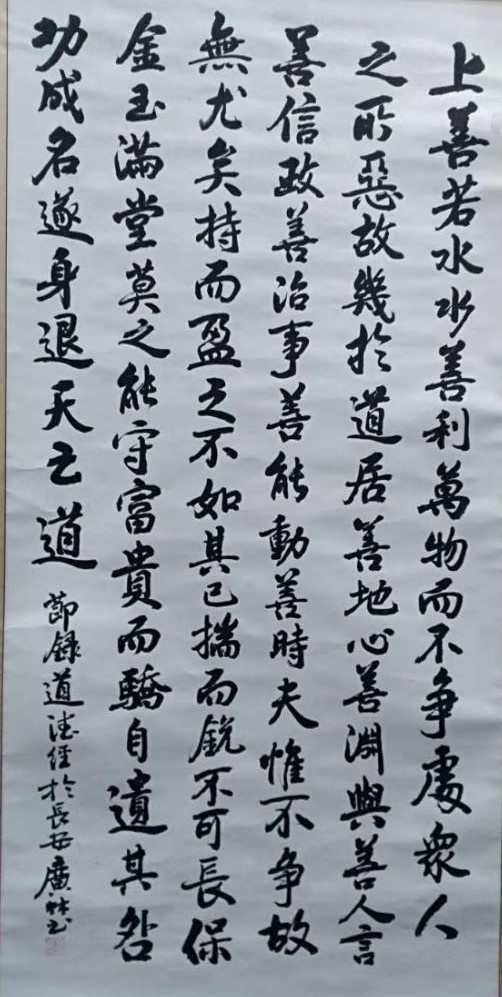 上善若水水善利萬物而不争處衆人
之所惡故幾於道居善地心善淵與善人言
善信政善治事善能動善時夫惟不争故
無尤矣持而盈之不如其已揣而銳不可長保
金玉滿堂莫之能守富貴而驕自遺其咎
功成名遂身退天之道
節録道德經於長安廣林书